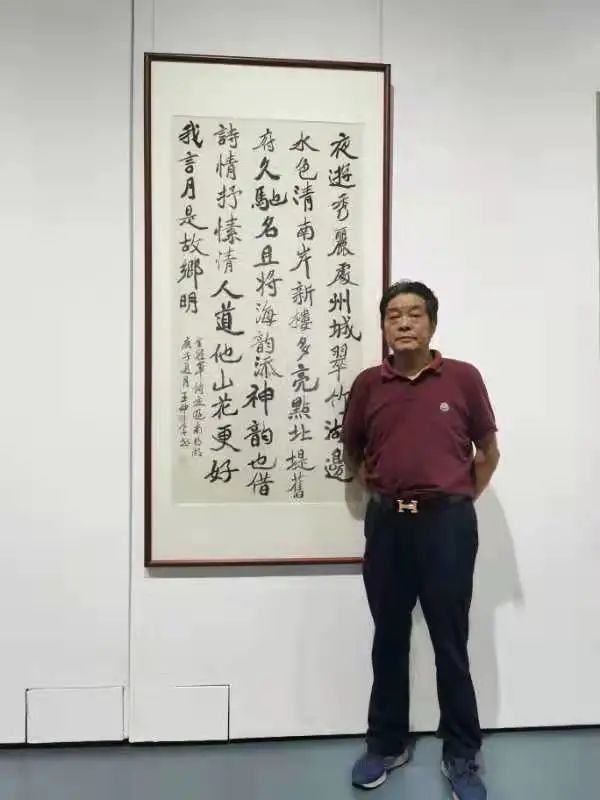 夜遊秀麗處州城翠竹湖邊
水色清南岸新樓多亮點北堤舊
府久馳名且將海韻添神韻也借
詩情抒愫情人道他山花更好
我言月是故鄉明
軍詩夜遊南明湖
庚子夏月王